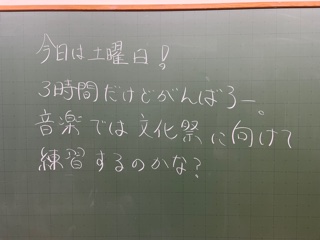 今日は土曜日!
3時間だけどがんばろー。
音楽では文化祭に向けて
練習するのかな?